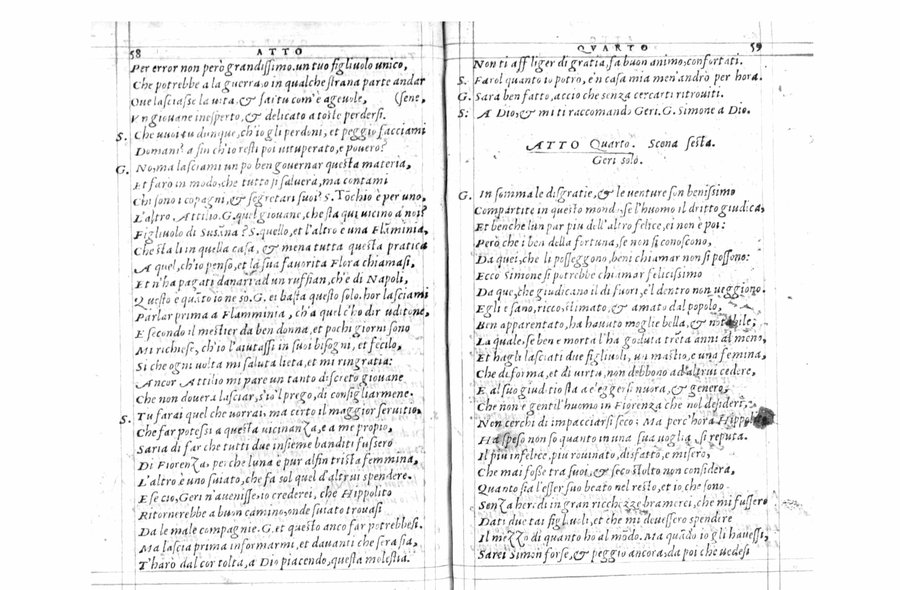 58 ATTO
Per error non però grandissimo un tuo figliuolo unico,
Che potrebbe a la guerra, o in qualche strana parte andar
Oue lasciasse la uita, & sai tu com'è ageuole, (sene,
Vn giouane inesperto, & delicato a torle perdersi.
S. Che uuoi tu dunque, ch'io gli perdoni, et peggio facciami
Domani? a fin ch'io resti poi uituperato, e pouero?
G. No, ma lasciami un po ben gouernar questa materia,
Et farò in modo, che tutto si saluerà, ma contami
Chi sono i copagni, & segretari suoi? S. Tòchio è per uno,
L'altro Attilio. G. quel giouane, che sta qui uicino a noi?
Figliuolo di Susāna? S. quello, et l'altro è una Flāminia,
Che sta li in quella casa, & mena tutta questa pratica
A quel, ch'io penso, et la sua fauorita Flora chiamasi,
Et n'ha pagati danari ad un ruffian, ch'è di Napoli,
Questo è quāto io ne so. G. ei basta questo solo. hor lasciami
Parlar prima a Flamminia, ch'a quel c'ho dir uditone,
E secondo il mestier da ben donna, et pochi giorni sono
Mi richiese, ch'io l'aiutassi in suoi bisogni, et fecilo,
Si che ogni uolta mi saluta lieta, et mi ringratia:
Ancor Attilio mi pare un tanto discreto giouane
Che non douerà lasciar, s'io'l prego, di consigliarmene.
S. Tu farai quel che uorrai, ma certo il maggior seruitio,
Che far potessi a questa uicinanza, e a me propio,
Saria di far che tutti due insieme banditi fussero
Di Fiorenza, perche luna è pur alfin trista femmina,
L'altro è uno suiato, che fa sol quel d'altrui spendere.
E se ciò, Geri n'auenisse, io crederei, che Hippolito
Ritornerebbe a buon camino, onde suiato trouasi
Da le male compagnie. G. et questo anco far potrebbesi.
Ma lascia prima informarmi, et dauanti che sera sia,
T'harò dal cor tolta, a Dio piacendo, questa molestia.
QVARTO 59
Non ti affliger di gratia, fa buon animo, confortati.
S. Farol quanto io potrò, e'n casa mia men'andrò per hora.
G. Sarà ben fatto, acciò che senza cercarti ritroviti.
S: A Dio, & mi ti raccomando Geri. G. Simone a Dio.
ATTO Quarto. Scena sesta.
Geri solo.
G. In somma le disgratie, & le venture son benissimo
Compartite in questo mondo, se l'huomo il dritto giudica,
Et benche l'un par piu dell'altro felice, ei non è poi:
Però che i ben della fortuna, se non si conoscono,
Da quei, che li posseggono, beni chiamar non si possono:
Ecco Simone si potrebbe chiamar felicissimo
Da que, che giudicano il di fuori, e'l dentro non ueggiono.
Egli è sano, ricco, stimato, & amato dal popolo,
Ben apparentato, ha hauuto moglie bella, & notabile;
La quale, se ben è morta l'ha goduta trēta anni al meno,
Et hagli lasciati due figliuoli, un mastio, e una femina,
Che di forma, et di uirtù, non debbono ad altrui cedere,
E al suo giuditio sta a e'eggersi nuora, & genero,
Che non è gentil'huomo in Fiorenza che nol desideri,
Nen cerchi di impacciarsi seco; Ma perc'hora Hippolito
Ha speso non so quanto in una sua uoglia, si reputa.
Il piu infelice, piu rouinato, disfatto, e misero,
Che mai fosse tra suoi, & seco stolto non considera,
Quanto sia l'esser suo beato nel resto, et io, che sono
Senza heredi in gran ricchezze bramerei, che mi fussero
Dati due tai figliuoli, et che mi deuessero spendere
Il mezzo di quanto ho al mōdo. Ma quādo io gli hauessi,
Sarei Simon forse, & peggio ancora, da poi che uedesi